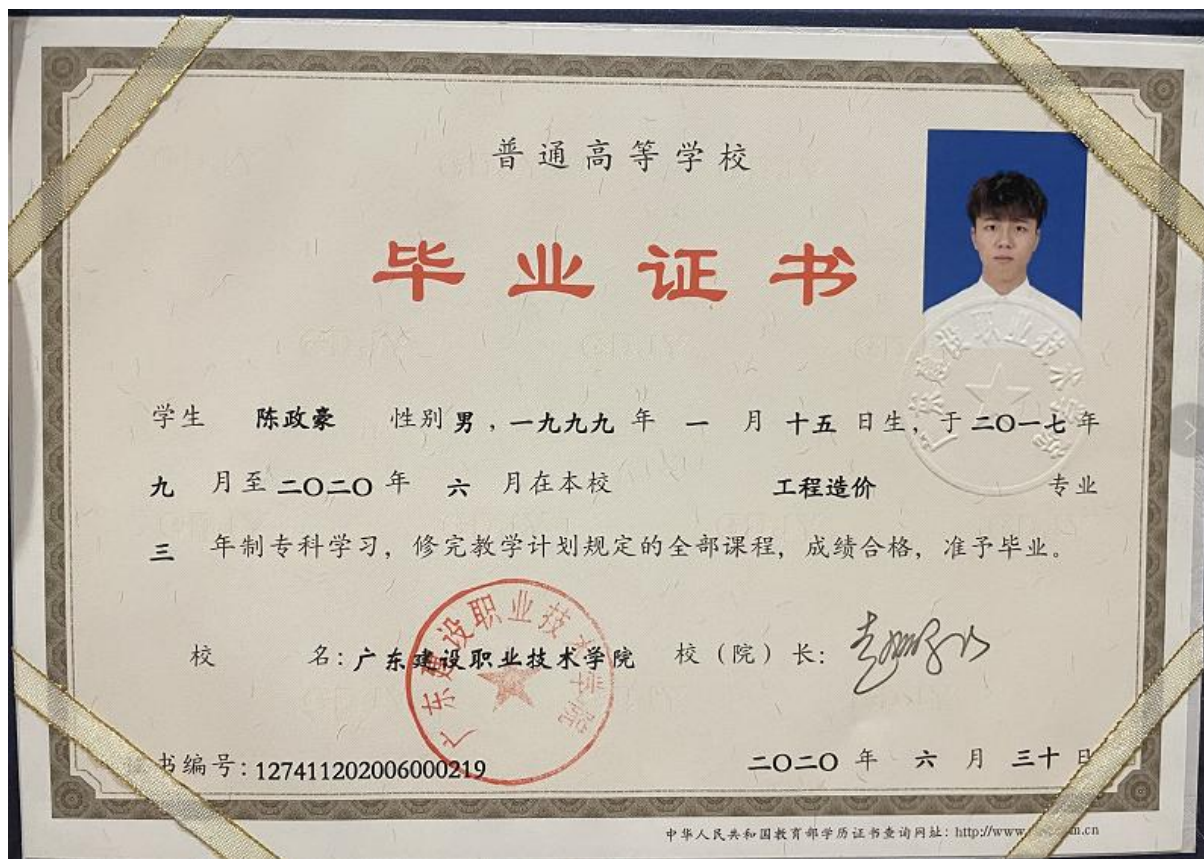 普通高等学校
毕业证书
学生 陈政豪 性别 男，一九九九 年 一 月 十五 日生，于 二〇一七 年
九 月至 二〇二〇 年 六 月在本校 工程造价 专业
三 年制专科学习，修完教学计划规定的全部课程，成绩合格，准予毕业。
校 名：广东建设职业技术学院 校（院）长：
广东建设职业技术学院
书编号：127411202006000219 二〇二〇 年 六 月 三十 日
中华人民共和国教育部学历证书查询网址：http://www
广东建设职业技术学院